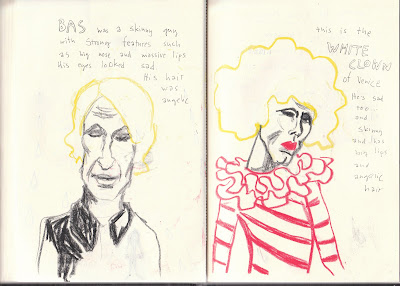 BAS was a skinny guy
with strong features such
as big nose and massive lips
His eyes looked sad
His hair
was
angelic
this is the
WHITE
CLOWN
of Venice
He's sad
too...
and
skinny
and has
big lips
and
angelic
hair